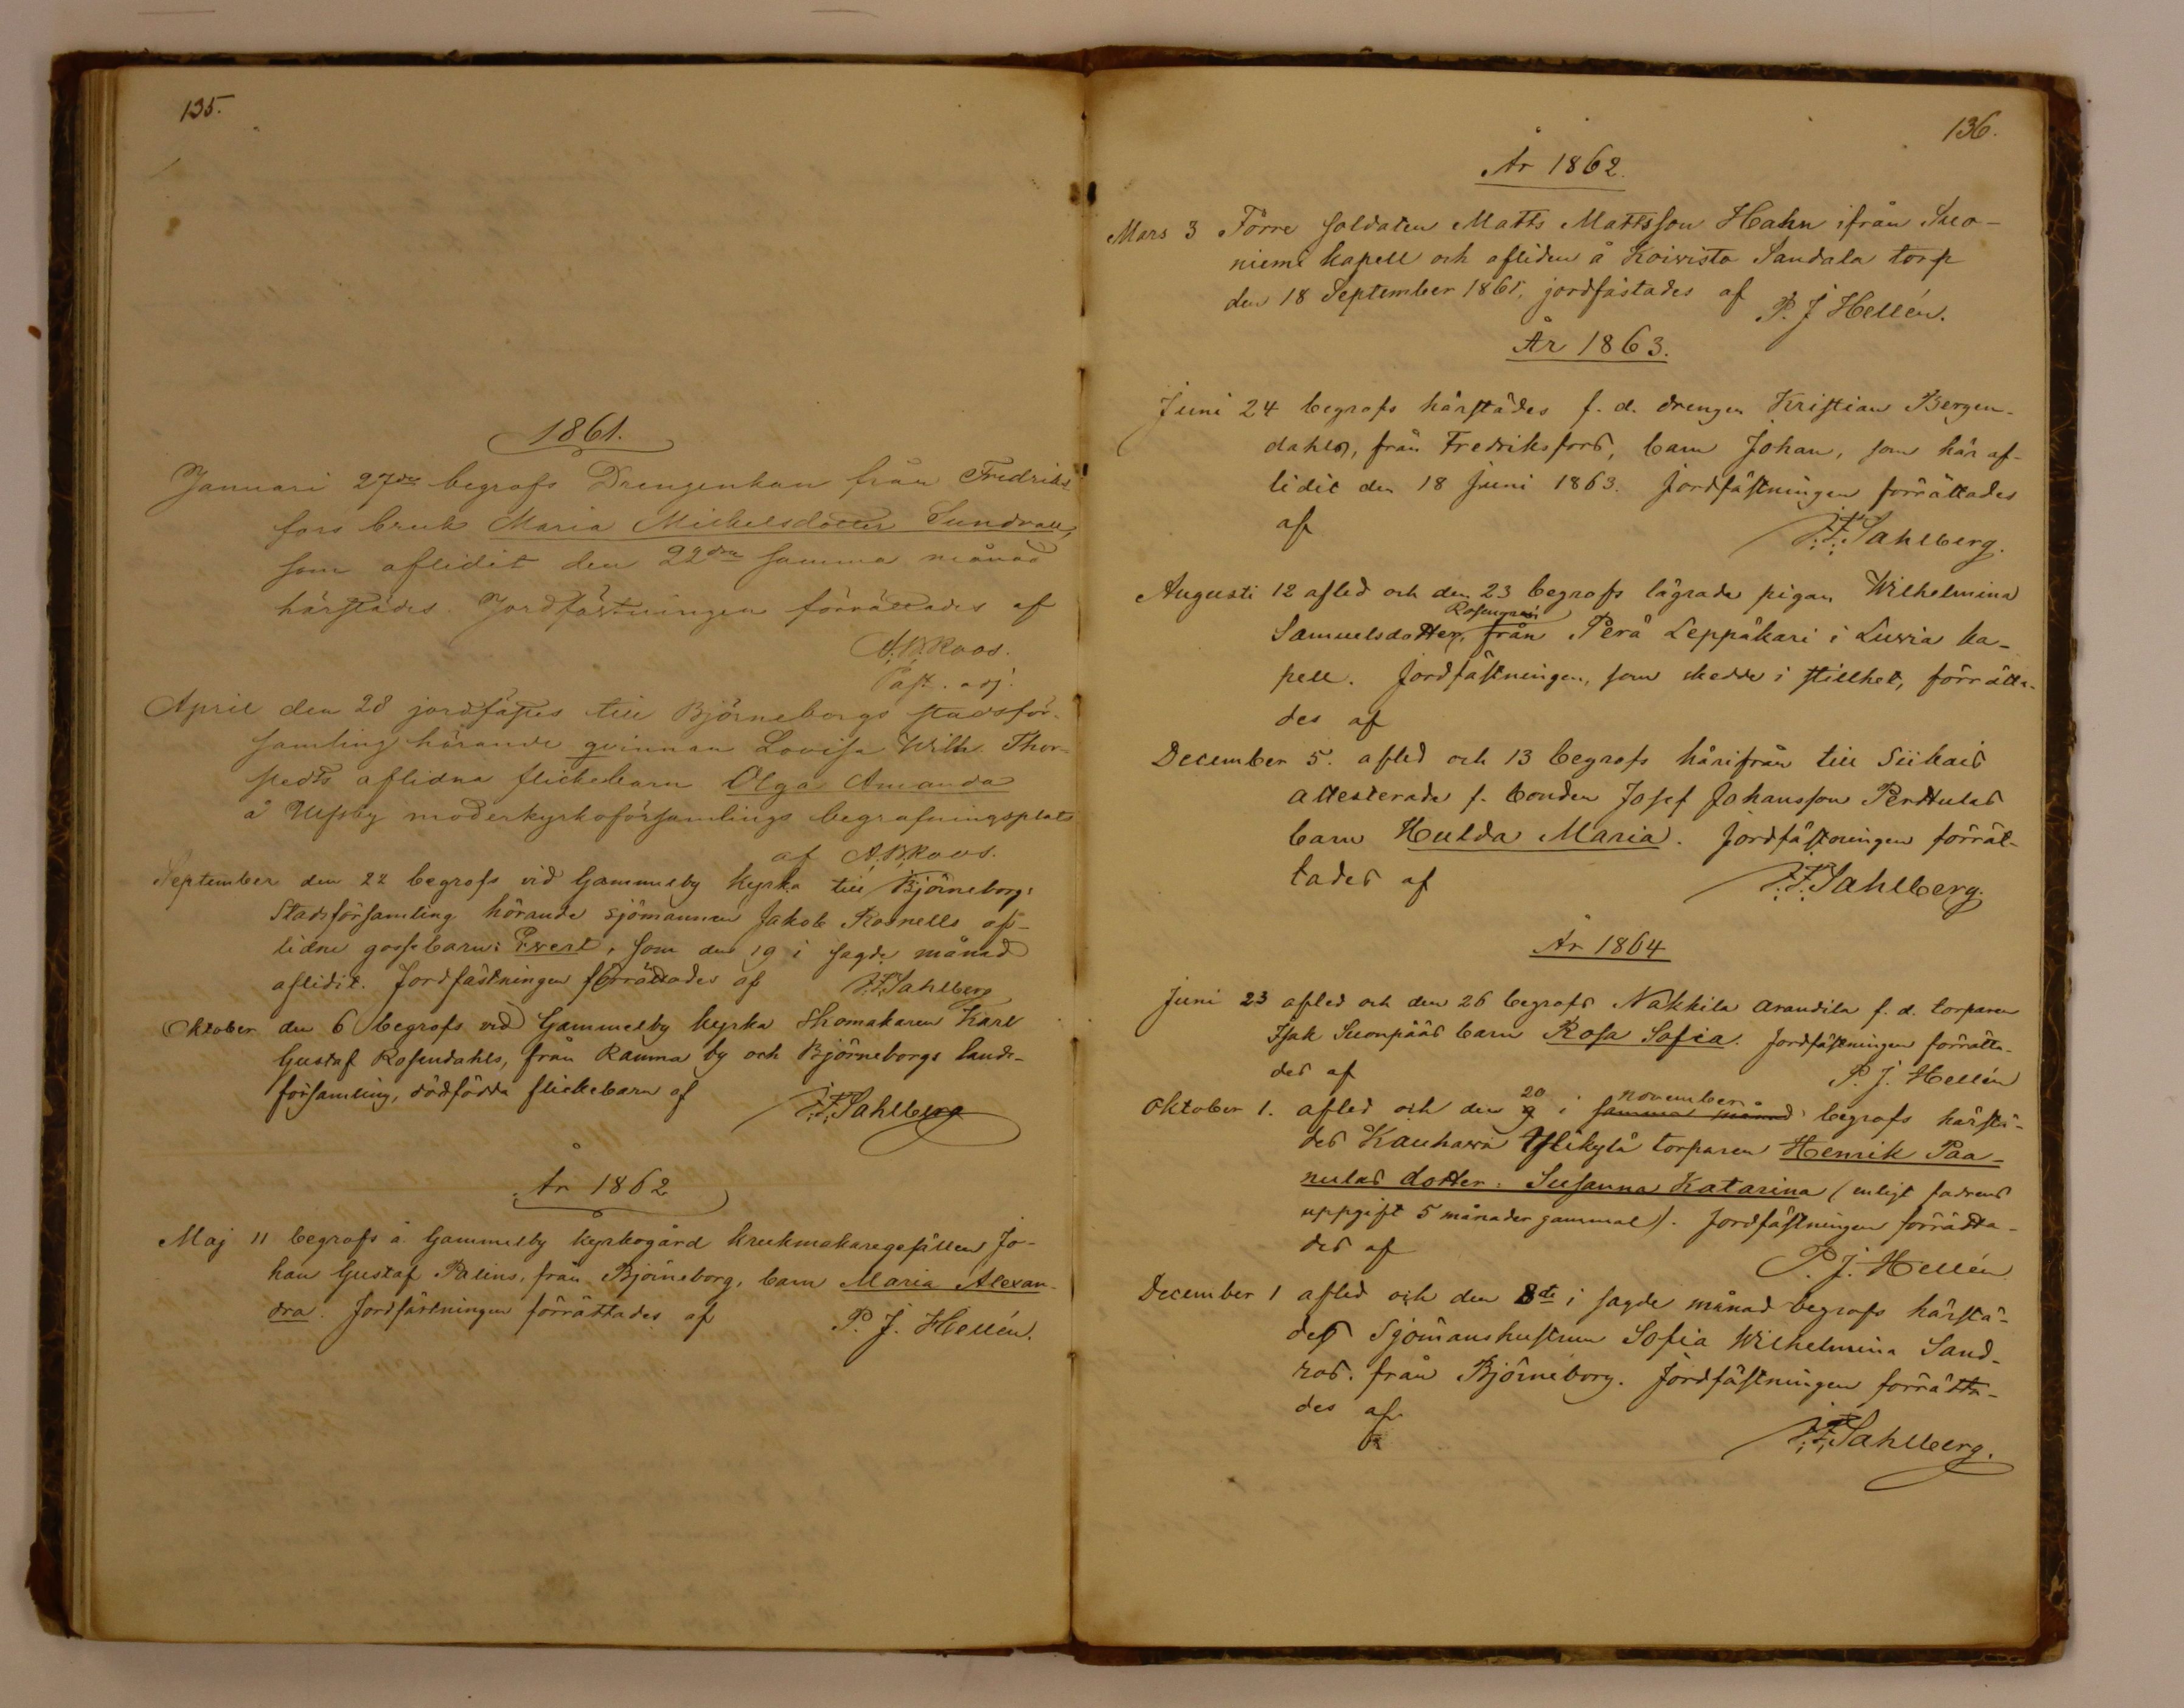 135.
1861.
Januari 27de begrofs Drengenkan från Fredriks
fors bruk Maria Michelsdotter Sundvall,
som aflidit den 22dra samma månad
härstädes. Jordfästningen förrättades af
A.B. Roos.
Past. adj.
April den 28 jordfästes till Björneborgs stadsför-
samling hörande qvinnan Lovisa Wilh. Thor-
stedts aflidna flickebarn Olga Amanda
å Ulfsby moderkyrkoförsamlings begrafningsplats
af A.B. Roos.
September den 22 begrofs vid Gammelby kyrka till Björneborgs
Stadsförsamling hörande sjömannen Jakob Rosnells af-
lidne gossebarn: Evert, som den 19 i sagde månad
aflidit. Jordfästningen förrättades af F.F. Sahlberg
Oktober den 6 begrofs vid Gammelby kyrka skomakaren Karl
Gustaf Rosendahls, från Rauma by och Björneborgs lands-
församling, dödfödda flickebarn af
F.F. Sahlberg
År 1862
Maj 11 begrofs å Gammelby kyrkogård krukmakaregesällen Jo-
han Gustaf Palins, från Björneborg, barn Maria Alexan-
dra. Jordfästningen förrättades af P. J. Hellén.
136.
År 1862.
Mars 3 Förre soldaten Matts Mattsson Hahn ifrån Suo-
niemi kapell och afliden å Koivisto Sandala torp
den 18 September 1861, jordfästades af P. J Hellén.
År 1863.
Juni 24 begrofs härstädes f. d. drengen Kristian Bergen-
dahls, från Fredriksfors, barn Johan, som här af-
lidit den 18 Juni 1863. Jordfästningen förrättades
af F.F. Sahlberg.
Augusti 12 afled och den 23 begrofs lägrade pigan Wilhelmina
Rosengren
Samuelsdotter, från Perä Leppäkari i Luvia ka-
pell. Jordfästningen, som skedde i stillhet, förrätta-
des af
December 5. afled och 13 begrofs härifrån till Siikais
attesterade f. bonden Josef Johansson Perttulas
barn Hulda Maria. Jordfästningen förrät-
tades af F.F. Sahlberg.
År 1864
Juni 23 afled och den 26 begrofs Nakkila Arandila f. d. torparen
Isak Suonpääs barn Rosa Sofia. Jordfästningen förrätta-
des af P. J. Hellén
20 november
Oktober 1. afled och den 9 i samma månad begrofs härstä-
des Kauhava Ylikylä torparen Henrik Paa-
nulas dotter: Susanna Katarina (enligt fadrens
uppgift 5 månader gammal). Jordfästningen förrätta-
des af
P. J. Hellén
December 1 afled och den 8de i sagde månad begrofs härstä-
des Sjömanshustrun Sofia Wilhelmina Sand-
ros. från Björneborg. Jordfästningen förrätta-
des af
F.F. Sahlberg.